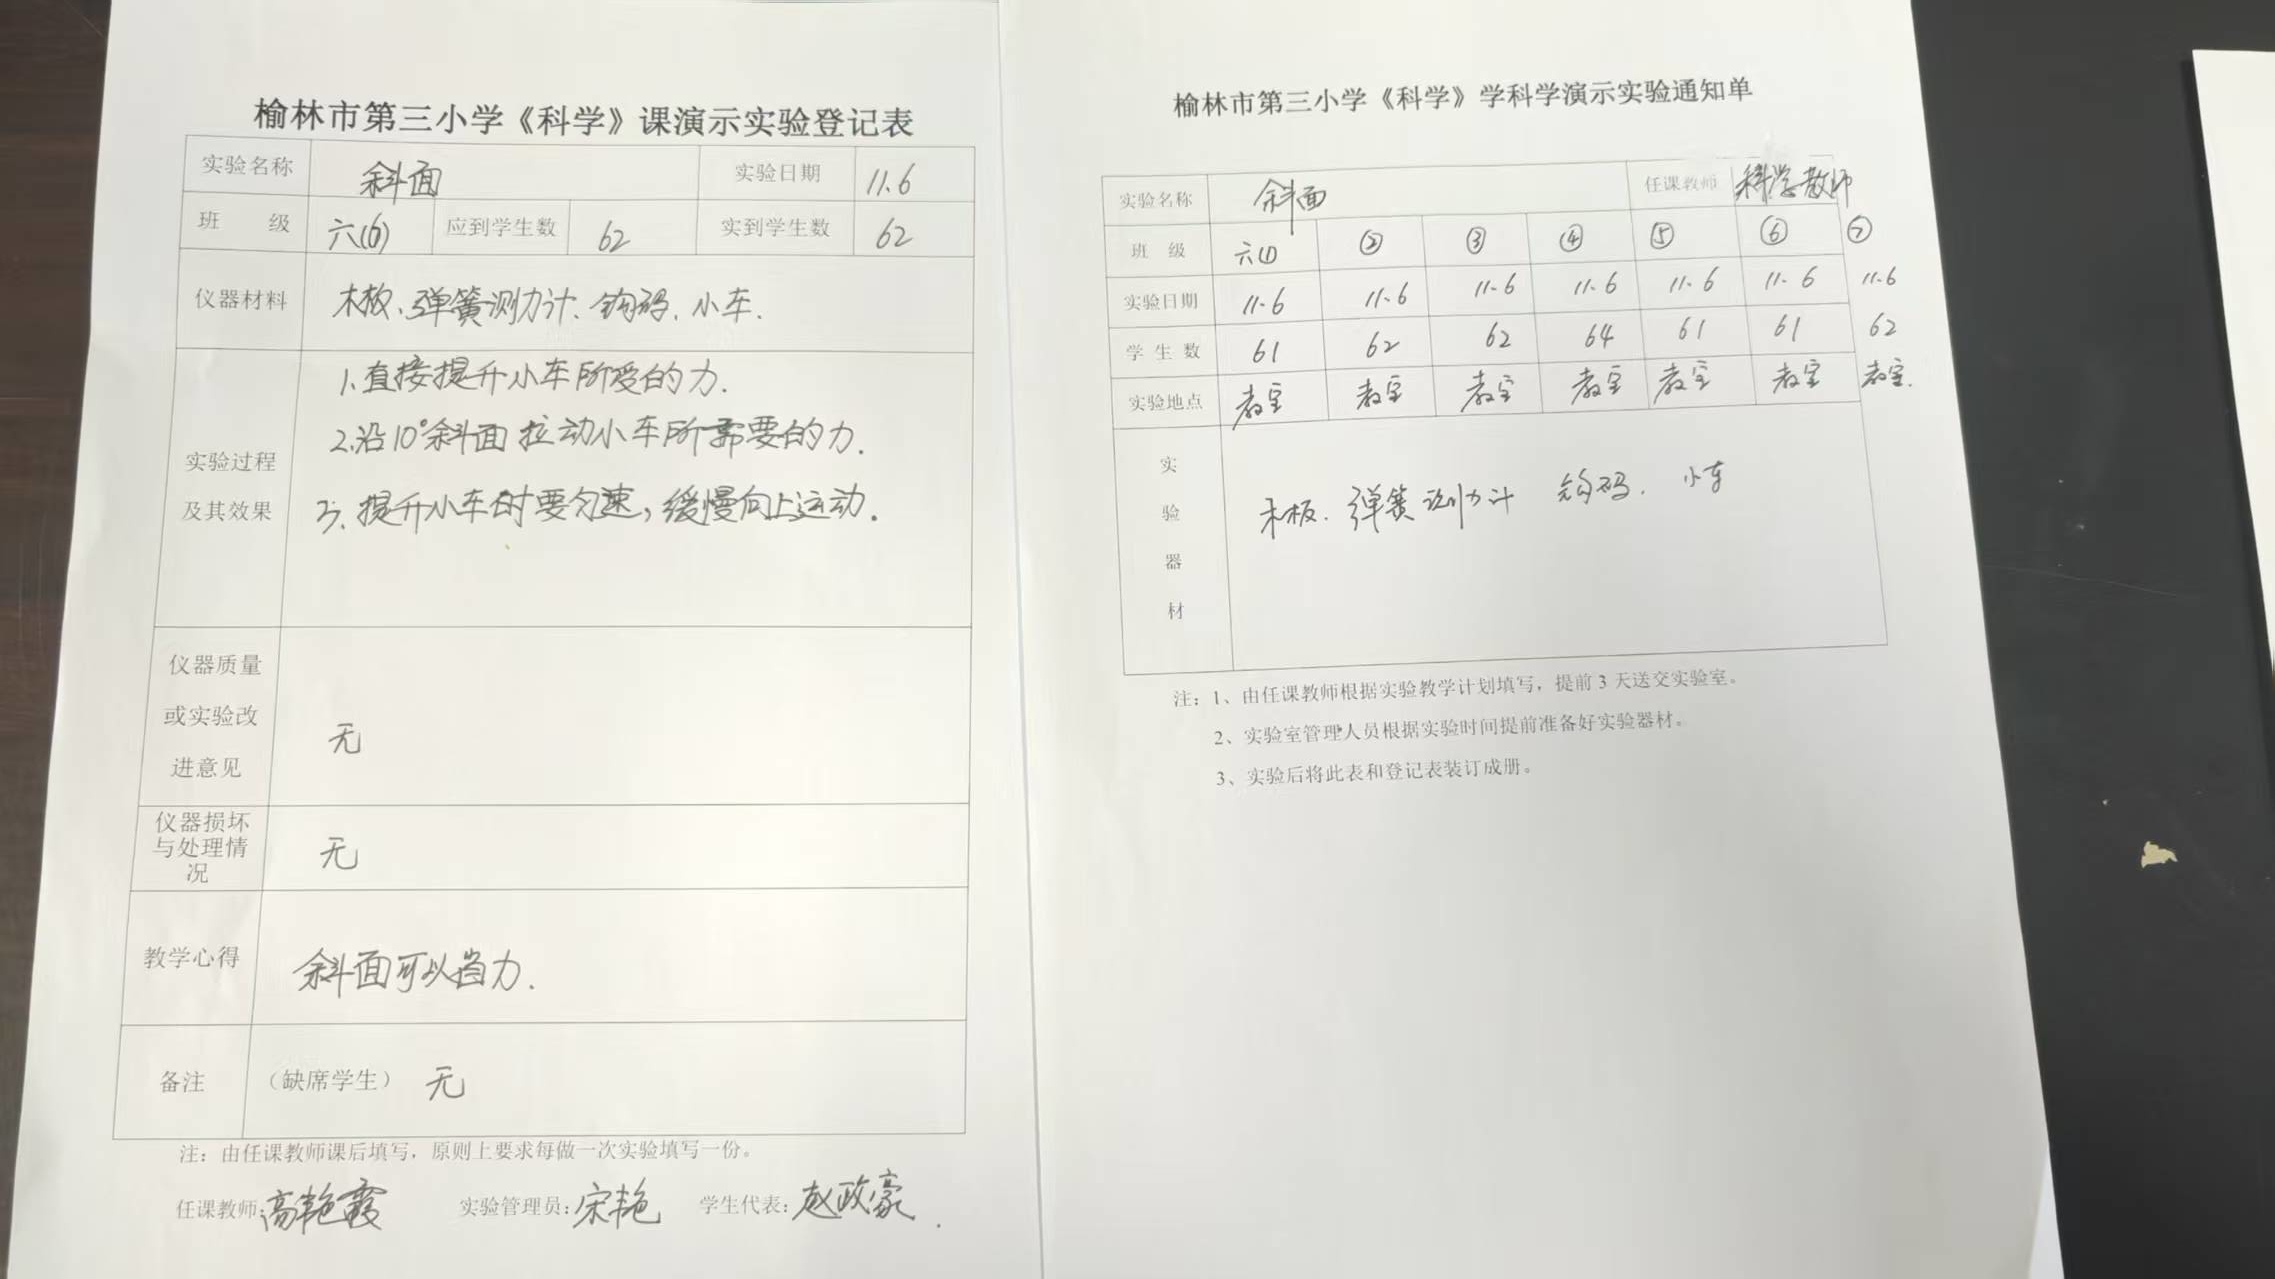 榆林市第三小学《科学》课演示实验登记表
实验名称 斜面 实验日期 11.6
班 级 六(6) 应到学生数 62 实到学生数 62
仪器材料 木板、弹簧测力计、钩码、小车.
实验过程及其效果
1、直接提升小车所受的力.
2、沿10°斜面拉动小车所需要的力.
3、提升小车时要匀速,缓慢向上运动.
仪器质量
或实验改
进意见
无
仪器损坏
与处理情
况
无
教学心得 斜面可以省力.
备注 (缺席学生) 无
注:由任课教师课后填写,原则上要求每做一次实验填写一份。
任课教师:高艳霞 实验管理员:宋艳 学生代表:赵政豪.
榆林市第三小学《科学》学科学演示实验通知单
实验名称 斜面 任课教师 科学教师
班 级 六(1) ② ③ ④ ⑤ ⑥ ⑦
实验日期 11.6 11.6 11.6 11.6 11.6 11.6 11.6
学 生 数 61 62 62 64 61 61 62
实验地点 教室 教室 教室 教室 教室 教室 教室.
实
验
器
材
木板. 弹簧测力计 钩码. 小车
注:1、由任课教师根据实验教学计划填写,提前3天送交实验室。
2、实验室管理人员根据实验时间提前准备好实验器材。
3、实验后将此表和登记表装订成册。